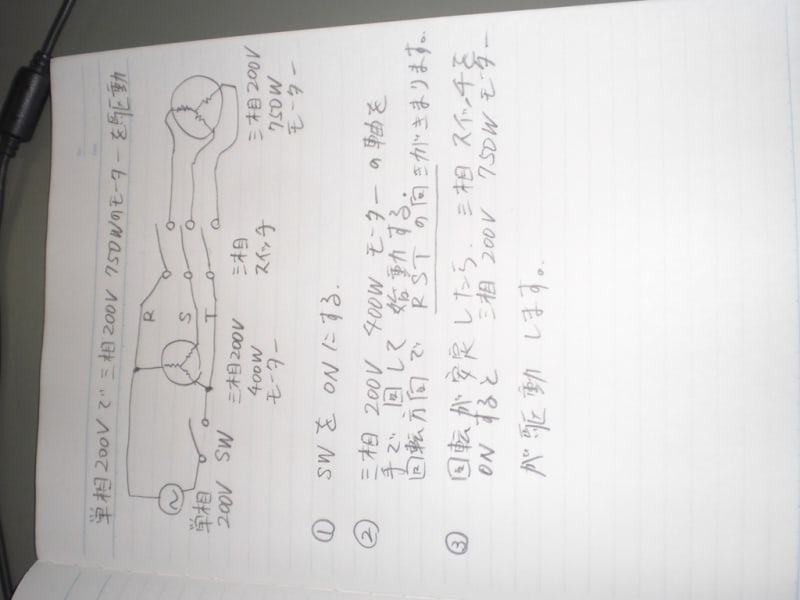 単相200Vで三相200V 750Wのモーターを駆動
単相
200V
SW
R
S
T
三相200V
400W
モーター
三相
スイッチ
三相200V
750W
モーター
① SWをONにする.
② 三相 200V 400W モーターの軸を
手で回して 始動する.
回転方向で RSTの向きがきまります。
③ 回転が安定したら、三相スイッチを
ONすると 三相 200V 750W モーター
が駆動します。